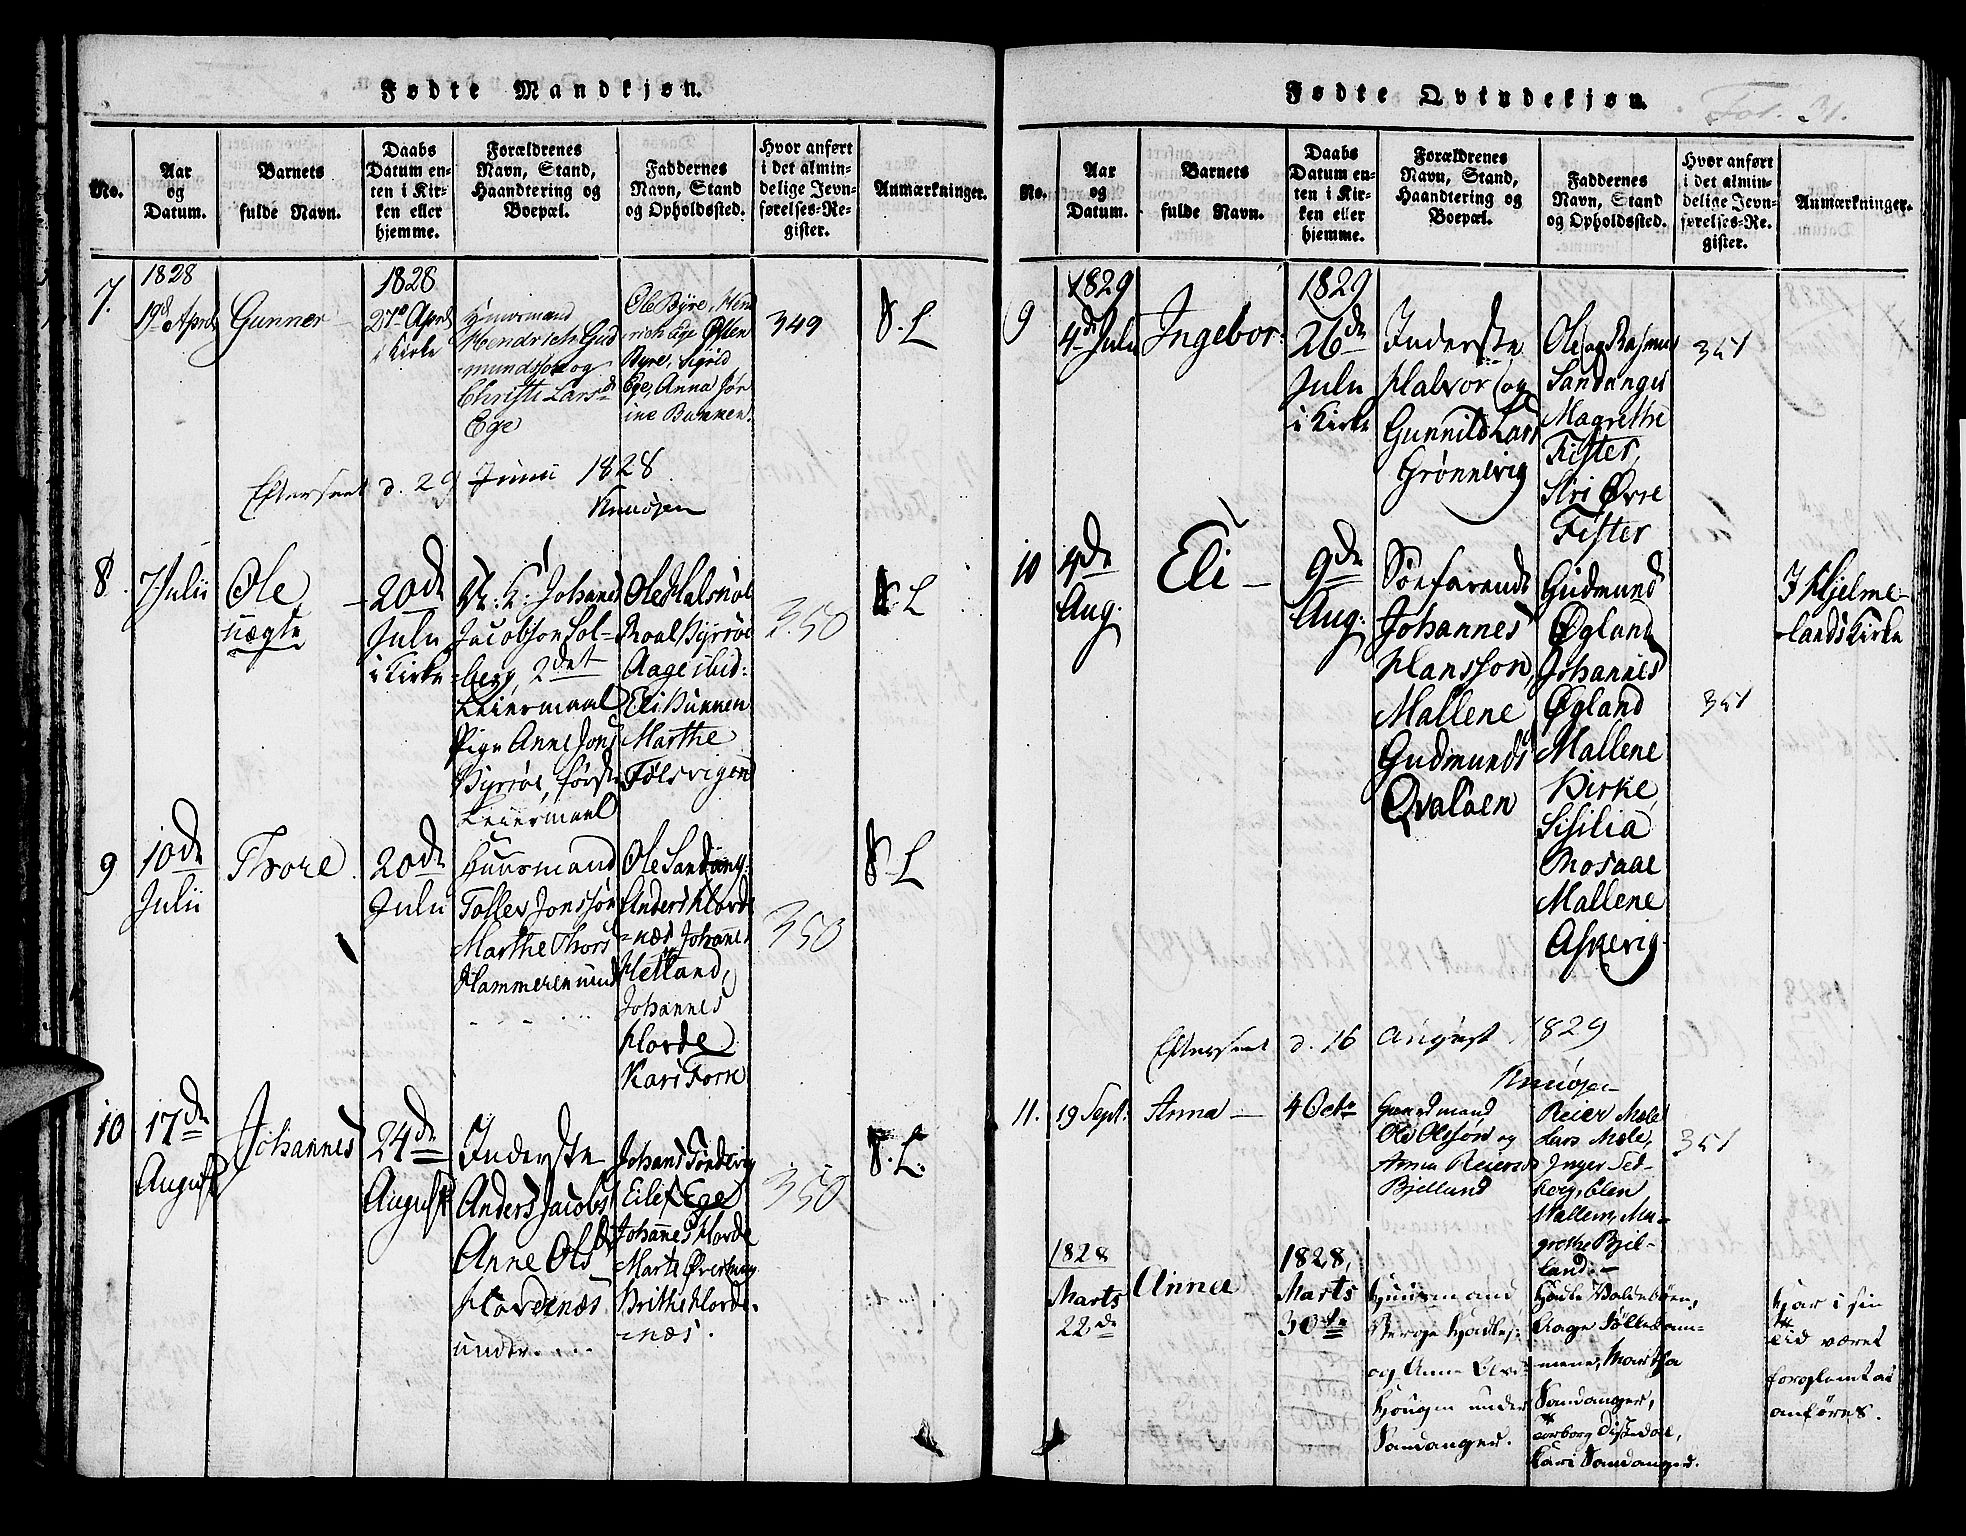 Fødte Mandkjøn.
No.
Aar
og
Datum.
Barnets
fulde Navn.
Daabs
Datum en-
ten i Kir-
ken eller
hjemme.
Forældrenes
Navn, Stand,
Haandtering og
Boepæl.
Faddernes
Navn, Stand
og Opholdssted.
Hvor anført
i det almin-
delige Jevn-
førelses-Re-
gister.
Anmærkninger.
7.
1828
19d April
Gunner
1828
27d April
i Kirke
Huusmand
Hendrich Gud
mundssøn og
Christi Larsd
Ege
Ole Byre, Hend
rich Ege Østen
Byre, Sigrid
Ege, Anna Jør
ine Bunnen.
349
S. L
Efterseet d. 29 Junii 1828
Knudsen
8.
7 Julii
Ole
uægte
20de
Julii
i Kirke
U: K: Johanes
Jacobsøn Sol-
berg, 2det
Leiermaal
Pige Anne Jons
Byrrøe, første
Leiermaal
Ole Halsnøe
Roal Byrrøe
Aage ibid:
Eli Bunnen
Marthe
Følsvigen
350
S. L
9
10de
Julii
Thore
20de
Julii
Huusmand
Tollev Jonssøn
Marthe Thors
Hammeren und
Ole Sandang:
Anders Horde
-næs Johanes
Hetland,
Johannes
Horde
Kari Forre
350
S. L
10
17de
August
Johannes
24de
August
Inderste
Anders Jacobs
Anne Olsd
Hordenæs
under
Johans Tøndevig
Eilef Ege
Johannes Horde
Marte
Brithe Horde-
-næs.
350
S. L.
Fødte Qvindekjøn.
Fol. 31.
No.
Aar
og
Datum.
Barnets
fulde Navn.
Daabs
Datum en-
ten i Kir-
ken eller
hjemme.
Forældrenes
Navn, Stand,
Haandtering og
Boepæl.
Faddernes
Navn, Stand
og Opholdssted.
Hvor anført
i det almin-
delige Jevn-
førelses-Re-
gister.
Anmærkninger.
9
1829
4de Julii
Ingebor:
1829
26de
Julii
i Kirke
Inderste
Halvor (og
Gunnild Lars
Grønnevig
Ole og Rasmus
Sandanger
Magrethe
Fister,
Siri Øvre
Fister
351
10
4de
Aug.
Eli
9de
Aug:
Søefarende
Johannes
Hansson,
Mallene
Gudmunds
Qvaløen
Gudmund
Øgland
Johannes
Øgland
Mallene
Birke,
Sisilia
Mosaae
Mallene
Askevig
351
I Hjelme-
lands Kirke
Efterseet d. 16 August 1829
Knudsen
11.
19 Sept:
Anna
4 Octr
Gaardmand
Ole Olssøn og
Anna Reiersd
Bjelland
Reier Mæle
Lars Mæle,
Inger Sed-
berg, Elen
Wallem, Ma-
grethe Bjel-
land.
351
1828
Marts
22de
Anna
1828,
Marts
30te
Huusmand,
Børge
og Anna
Hougen under
Sandanger.
Aage Tøttedam-
mene, Martha
Sandanger,
Kari Sandanger.
Har i sin
Tid været
forglemt at
anføres.